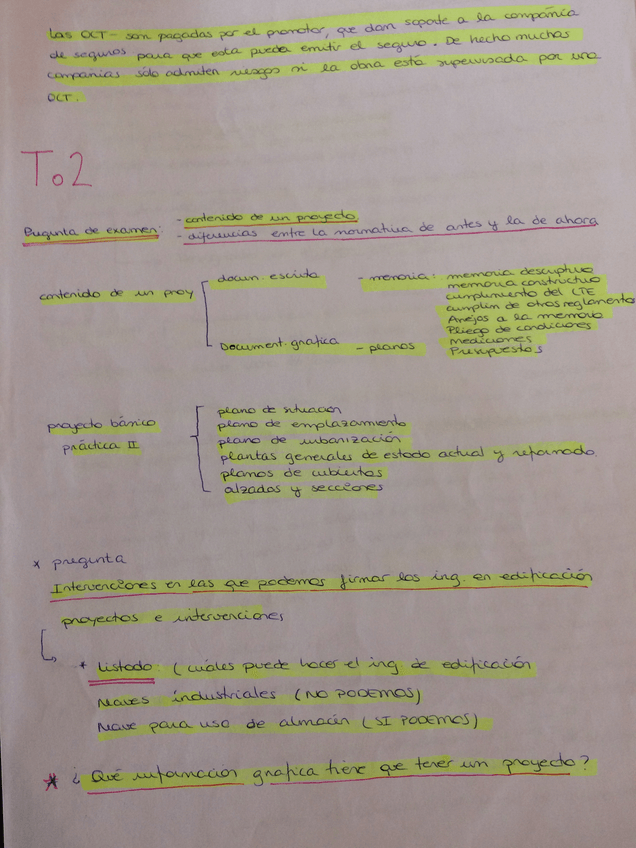 Las OCT - son pagadas por el promotor, que dan soporte a la compañía
de seguros para que esta pueda emitir el seguro. De hecho muchas
compañias sólo admiten riesgos si la obra está supervisada por una
OCT.
To2
Pregunta de examen: - contenido de un proyecto
- diferencias entre la normativa de antes y la de ahora
contenido de un proy
docum. escrita - memoria: memoria descriptiva
memoria constructiva
cumplimiento del CTE
cumplim de otros reglamento
Anejos a la memoria
Pliego de condiciones
Mediciones
Presupuestos
Document. grafica - planos
proyecto básico
práctica II
plano de situacion
plano de emplazamiento
plano de urbanización
plantas generales de estado actual y reformado
planos de cubiertas
alzados y secciones
* pregunta
Intervenciones en las que podemos firmar los ing. en edificación
proyectos e intervenciones
* Listado: (cuáles puede hacer el ing. de edificación
Naves industriales (NO PODEMOS)
Nave para uso de almacén (SI PODEMOS)
* ¿Qué informacion grafica tiene que tener un proyecto?